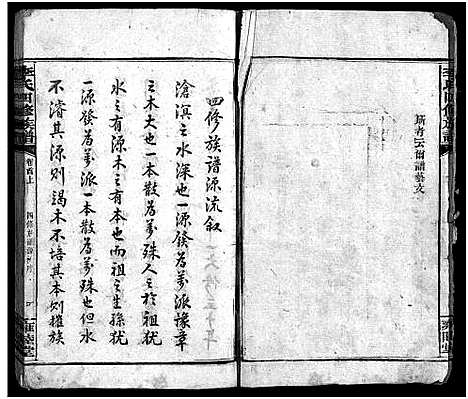 斯者云爾譜藝文
四修族譜源流敘
滄溟之水深也一源發為萬派豫章
之木大也一本散為萬殊人之於祖猶
水之有源木之有本也而祖之生孫猶
一源發為萬派一本散為萬殊也但水
不濬其源則竭木不培其本則摧族
李氏四修族譜
卷首上
雍睦堂